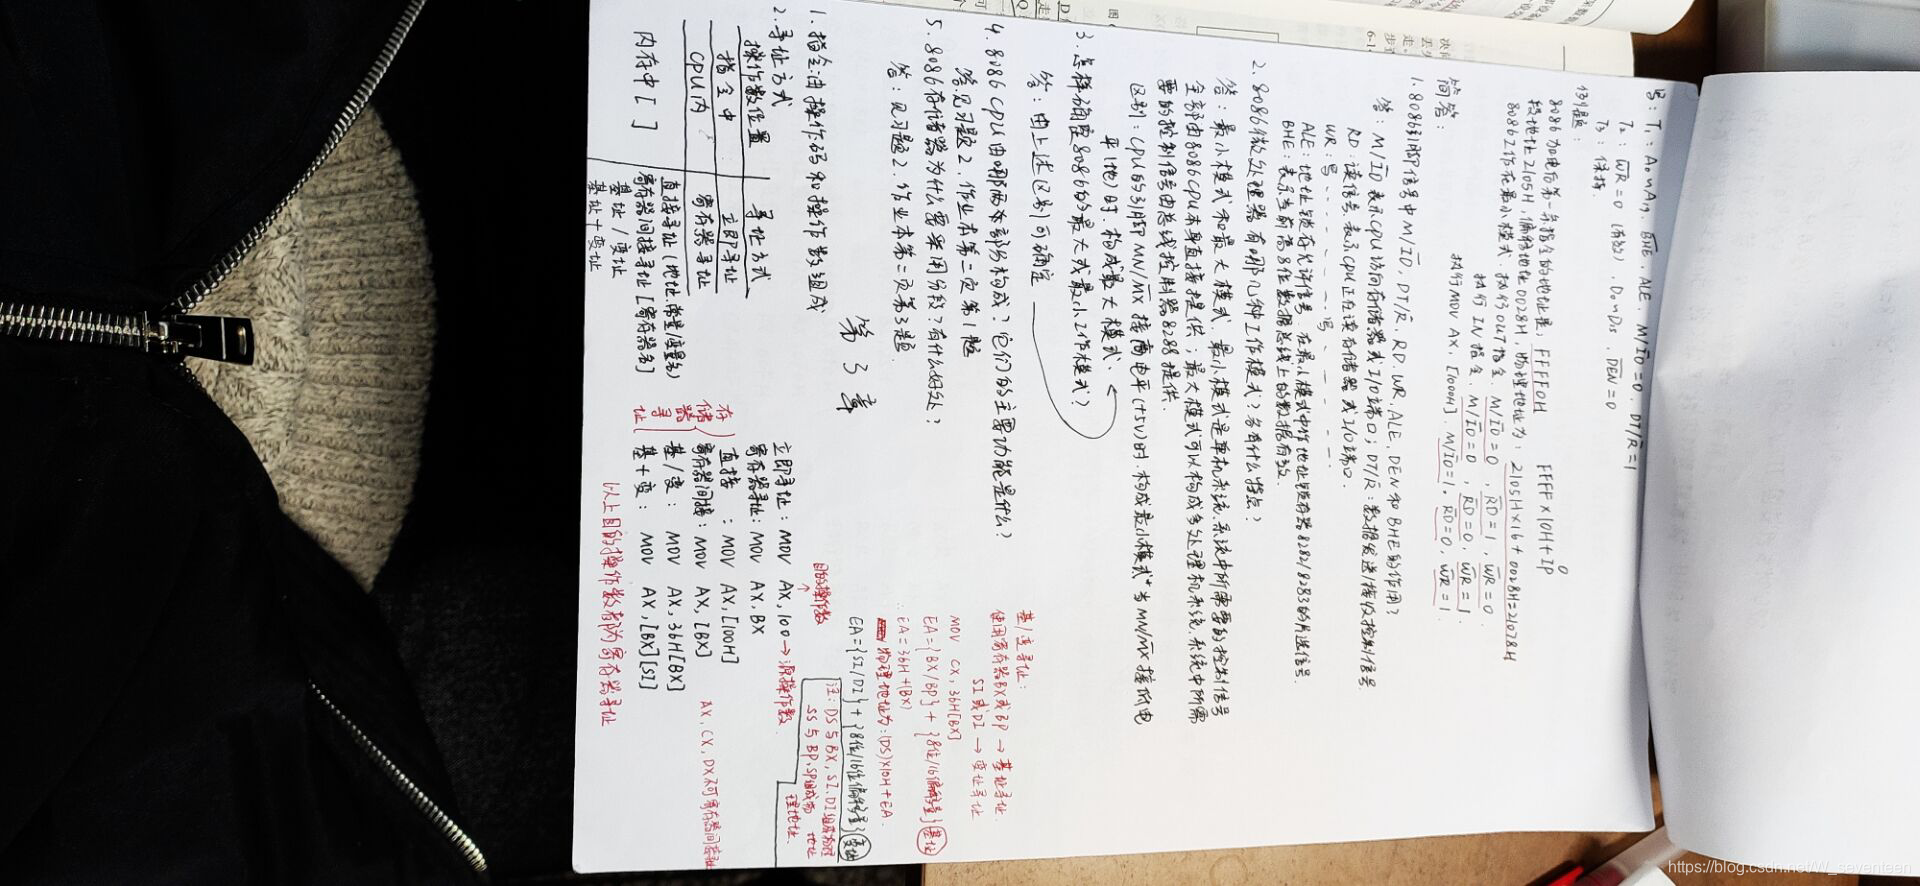 号: T₁: A₀~A₁₉, BHE, ALE, M/IO=0, DT/R=1
T₂: WR=0 (有效), D₀~D₁₅, DEN=0
T₃: 保持.
例题:
8086加电后第一条指令的地址是 FFFF0H FFFF×10H+IP 0
段地址2105H,偏移地址0028H,物理地址为: 2105H×16+0028H=21078H
8086工作在最小模式. 执行OUT指令. M/IO=0, RD=1, WR=0.
执行IN指令. M/IO=0, RD=0, WR=1.
执行MOV AX, [1000H]. M/IO=1, RD=0, WR=1.
简答:
1.8086引脚信号中M/IO, DT/R, RD, WR, ALE, DEN和BHE的作用?
答: M/IO表示CPU访问存储器或I/O端口; DT/R: 数据发送/接收控制信号
RD: 读信号,表示CPU正在读存储器或I/O端口.
WR: 写
ALE: 地址锁存允许信号. 在最小模式中作地址锁存器8282/8283的片选信号.
BHE: 表示当前高8位数据总线上的数据有效.
2.8086微处理器有哪几种工作模式?各有什么特点?
答: 最小模式和最大模式. 最小模式是单机系统.系统中所需要的控制信号
全部由8086CPU本身直接提供; 最大模式可以构成多处理机系统.系统中所需
要的控制信号由总线控制器8288提供.
区别: CPU的引脚MN/MX接高电平(+5V)时.构成最小模式,当MN/MX接低电
平(地)时.构成最大模式.
3.怎样确定8086的最大或最小工作模式?
答: 由上述区别可确定
4.8086CPU由哪两大部分构成?它们的主要功能是什么?
答见习题2.作业本第二次第1题
5.8086存储器为什么要采用分段?有什么好处?
答: 见习题2.作业本第二次第3题.
第3章
1.指令由操作码和操作数组成
2.寻址方式
操作数位置 寻址方式
指令中 立即寻址
CPU内 寄存器寻址
内存中[ ] 直接寻址(地址.常量变量名)
寄存器间接寻址[寄存器名]
基址/变址
基址+变址
立即寻址: MOV AX, 100→源操作数
目的操作数
寄存器寻址: MOV AX, BX
存储器寻址
直接: MOV AX, [100H]
寄存器间接: MOV AX, [BX]
AX, CX, DX不可寄存器间接寻址
基/变: MOV AX, 36H[BX]
基+变: MOV AX, [BX][SI]
以上目的操作数都为寄存器寻址
基/变寻址:
使用寄存器BX或BP → 基址寻址.
SI或DI → 变址寻址
MOV CX, 36H[BX]
EA={BX/BP}+{8位/16偏移量}基址
EA=36H+(BX)
物理地址为: (DS)×10H+EA.
EA={SI/DI}+{8位/16位偏移量}变址
注: DS与BX, SI, DI组成物理地址
SS与BP, SP组成物理地址.
https://blog.csdn.net/W_seventeen